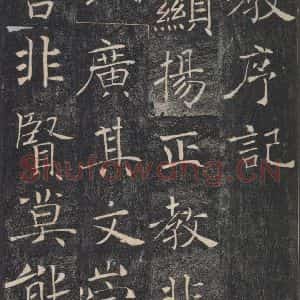 教序記
顯揚正教非
廣其文崇
言非賢莫能
Shufawang.CN